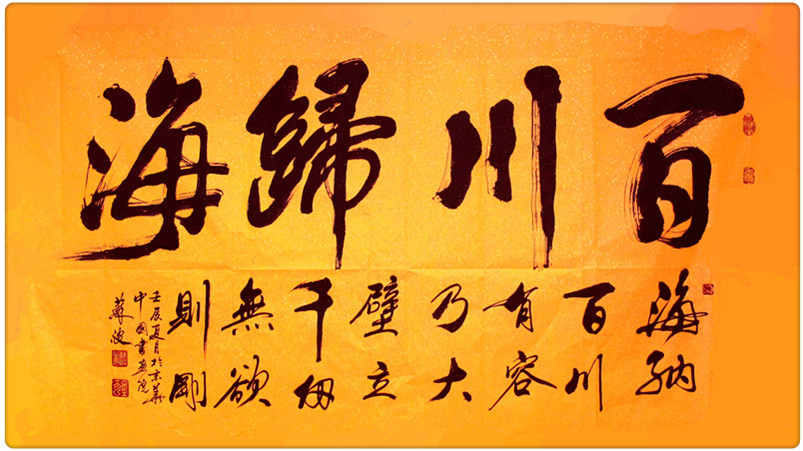 百川歸海
海納
百川
有容
乃大
壁立
千仞
無欲
則剛
壬辰夏月於京華
中國書畫院
蘇波